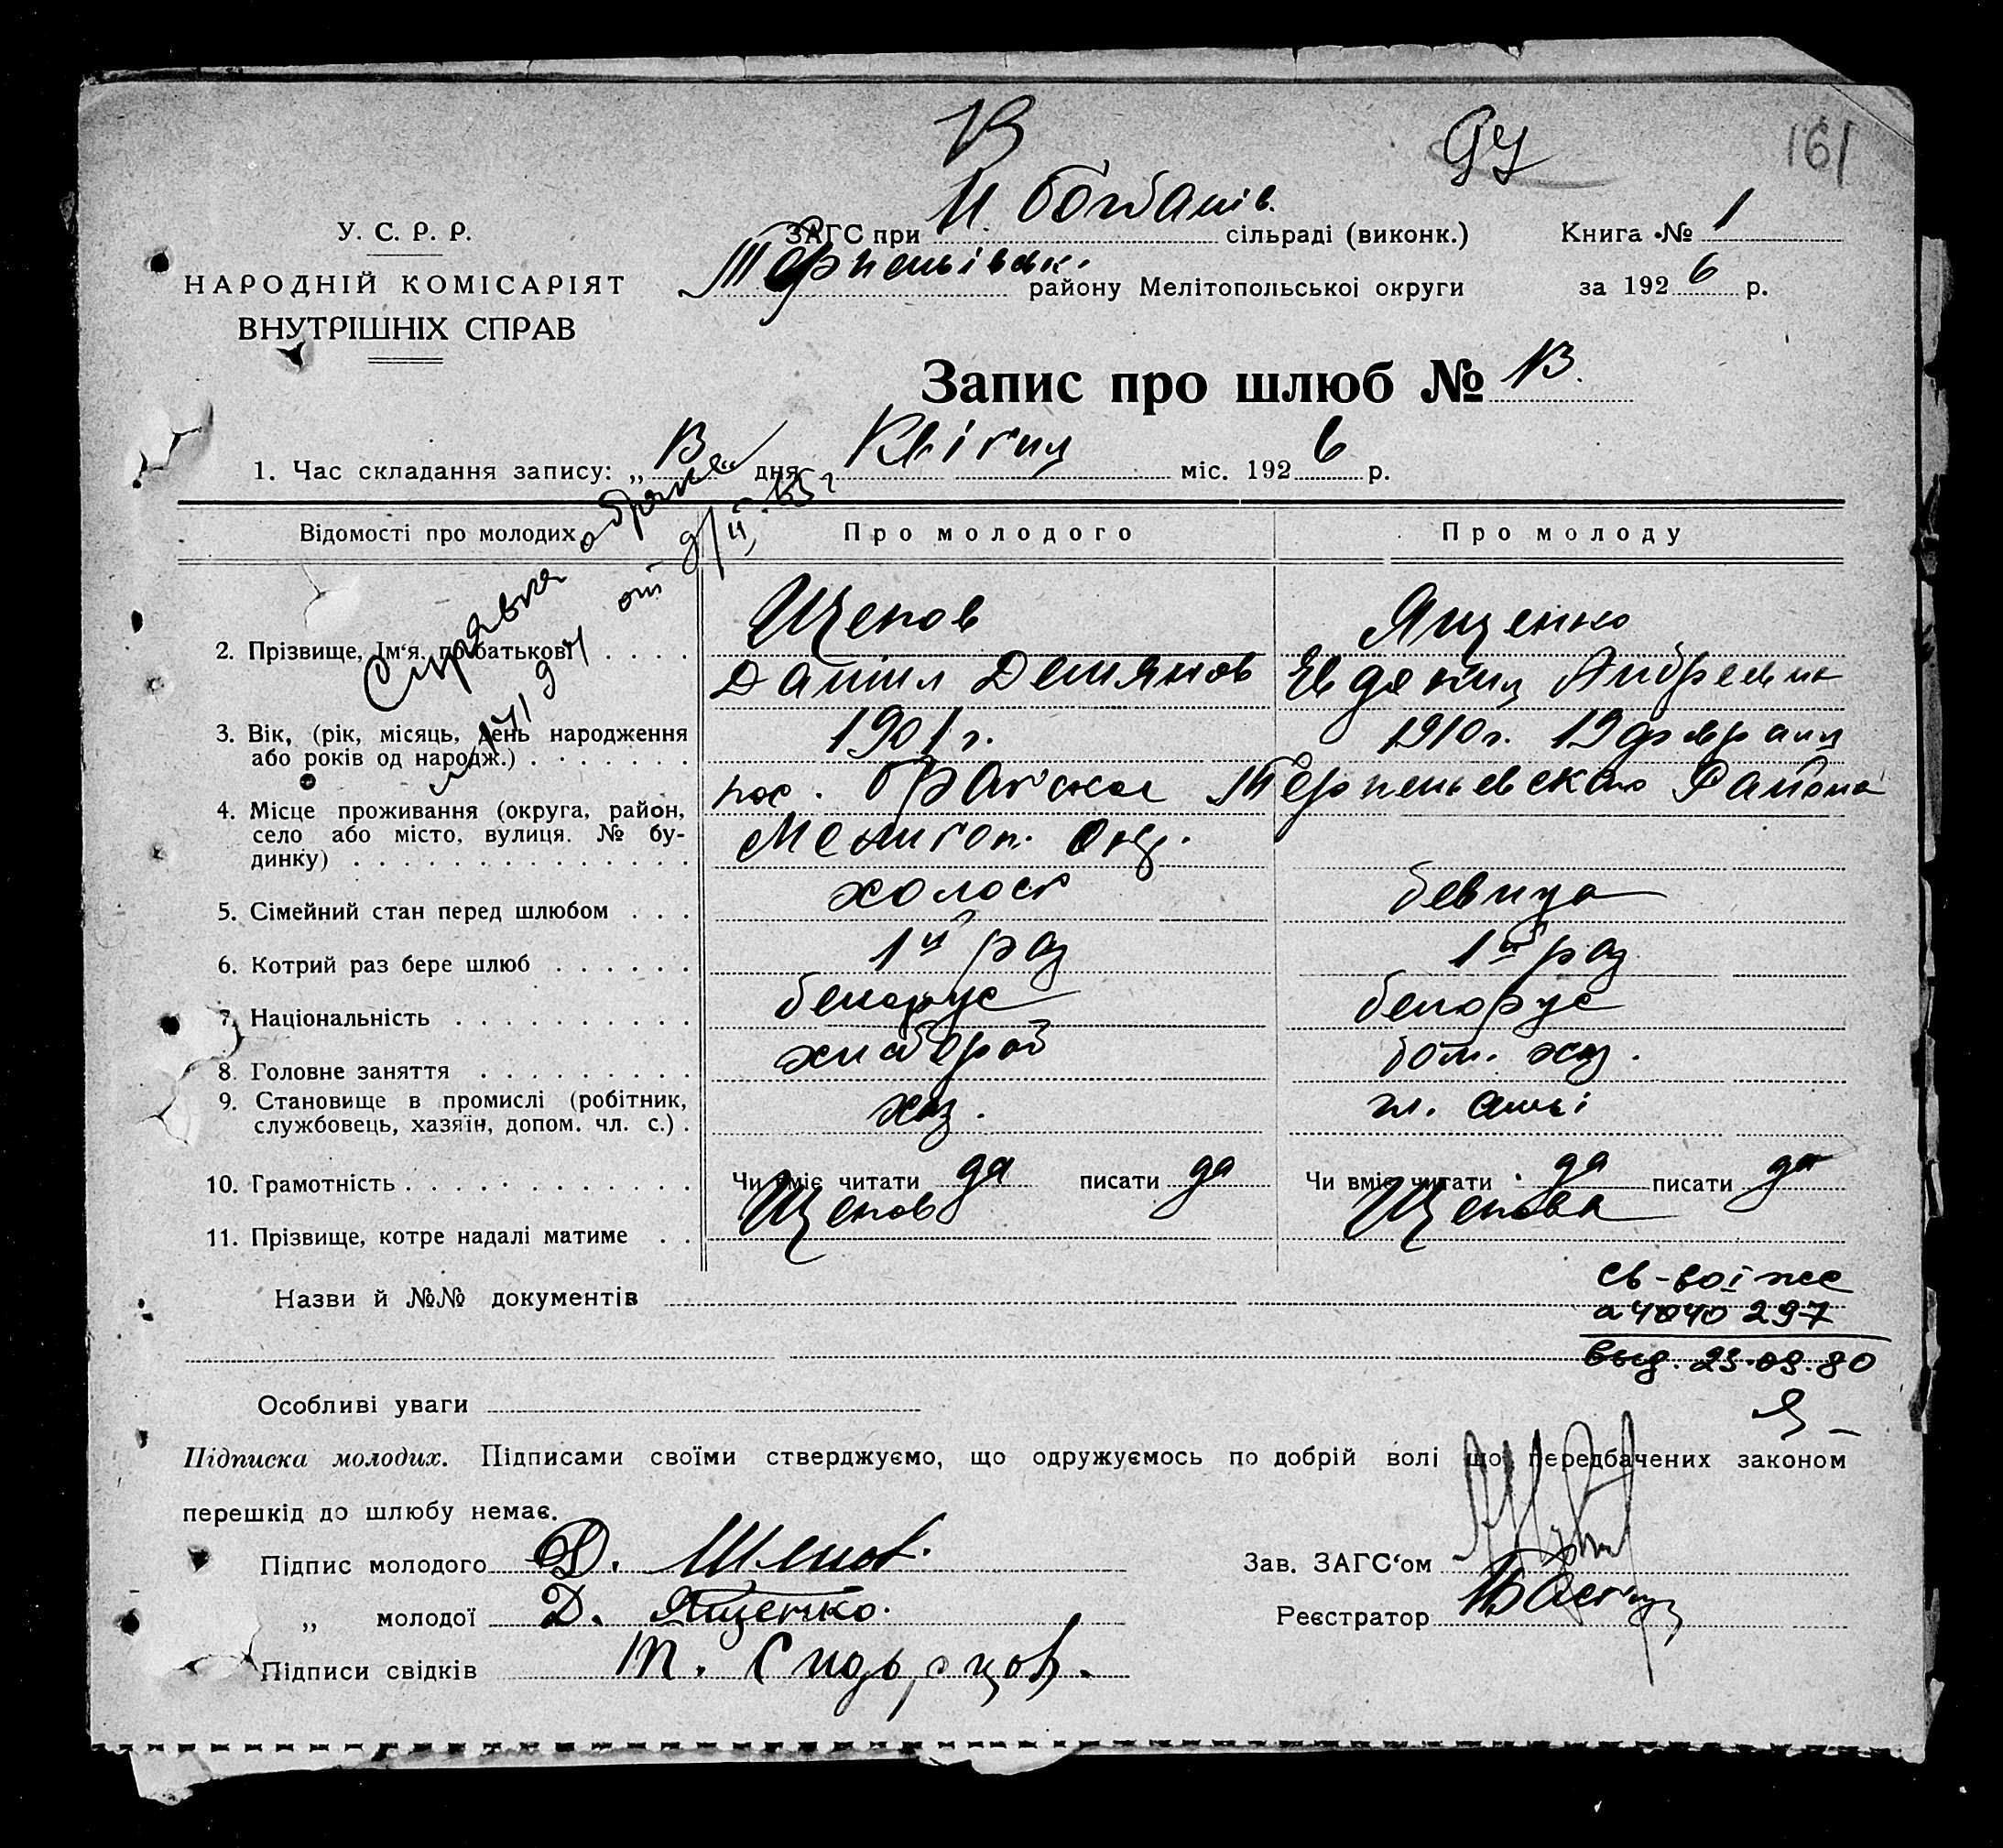 13
97
161
У. С. Р. Р.
НАРОДНІЙ КОМІСАРІЯТ
ВНУТРІШНІХ СПРАВ
ЗАГС при Н. Богданів. сільраді (виконк.)
Книга № 1
Терпеньівськ. району Мелітопольської округи
за 1926 р.
Запис про шлюб № 13.
1. Час складання запису: „13" дня Квітня міс. 1926 р.
Справка о браке
№ 171 от
Відомості про молодих
Про молодого
Про молоду
2. Прізвище, Ім'я, по батькові
Щепов
Данил Демянов
Ященко
Евдокия Андреевна
3. Вік, (рік, місяць, день народження
або років од народж.)
1901 г.
1910 г. 19 февраля
4. Місце проживання (округа, район,
село або місто, вулиця. № бу-
динку)
пос. Братское Терпеньевского Района
Мелитоп. Окр.
5. Сімейний стан перед шлюбом
холост
девица
6. Котрий раз бере шлюб
1й раз
1й раз
7. Національність
белорус
белорус
8. Головне заняття
хлебороб
дом. хоз.
9. Становище в промислі (робітник,
службовець, хазяїн, допом. чл. с.)
хоз.
чл. симьі
10. Грамотність
Чи вміє читати да писати да
Чи вміє читати да писати да
11. Прізвище, котре надалі матиме
Щепов
Щепова
Назви й №№ документів
св-во ІЖС
4040297
выд. 23.09.80
Особливі уваги
Підписка молодих. Підписами своїми стверджуємо, що одружуємось по добрій волі що передбачених законом
перешкід до шлюбу немає.
Підпис молодого Д. Щепов.
Зав. ЗАГС'ом
„ молодої Д. Ященко.
Реєстратор
Підписи свідків Т.